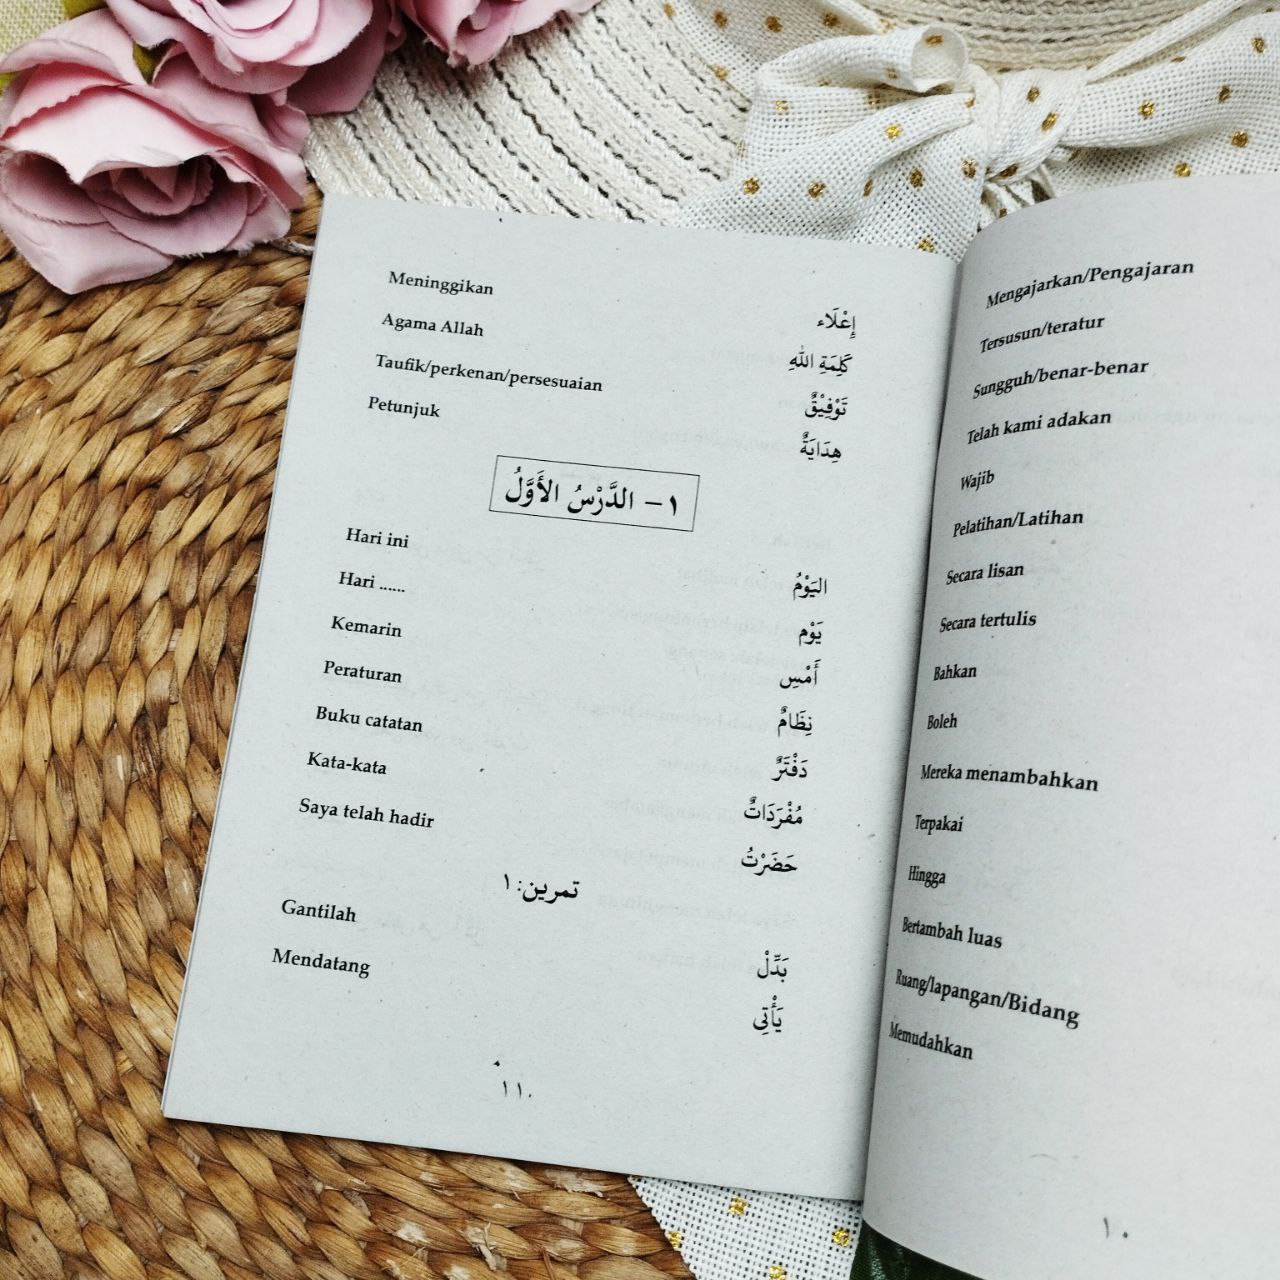 Meninggikan إِعْلَاء
Agama Allah كَلِمَةِ اللهِ
Taufik/perkenan/persesuaian تَوْفِيْقٌ
Petunjuk هِدَايَةٌ
١- الدَّرْسُ الأَوَّلُ
Hari ini اليَوْمُ
Hari ...... يَوْم
Kemarin أَمْسِ
Peraturan نِظَامٌ
Buku catatan دَفْتَرٌ
Kata-kata مُفْرَدَاتٌ
Saya telah hadir حَضَرْتُ
تمرين: ١
Gantilah بَدِّلْ
Mendatang يَأْتِى
١١
Mengajarkan/Pengajaran
Tersusun/teratur
Sungguh/benar-benar
Telah kami adakan
Wajib
Pelatihan/Latihan
Secara lisan
Secara tertulis
Bahkan
Boleh
Mereka menambahkan
Terpakai
Hingga
Bertambah luas
Ruang/lapangan/Bidang
Memudahkan
١٠